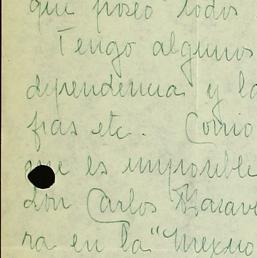 que poseo todos
Tengo algunos
dependencias y la
fías etc. Como
que es imposible
don Carlos
ra en la "Mexico